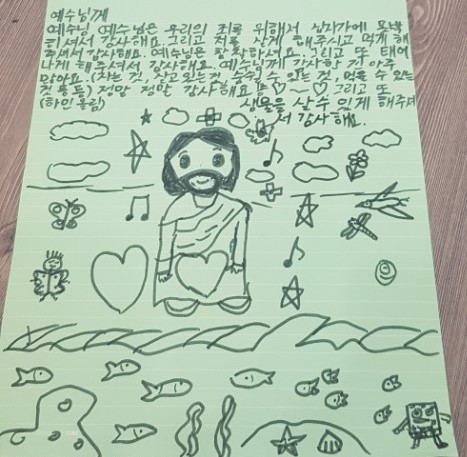 예수님께
예수님 예수님은 우리의 죄를 위해서 십자가에 못박
히셔서 감사해요. 그리고 저를 살게 해주시고 먹게 해
주셔서 감사해요. 예수님은 참 착하셔요. 그리고 또 태어
나게 해주셔서 감사해요. 예수님께 감사할 게 아주
많아요. (자는 것, 살고 있는 것, 숨쉴 수 있는 것, 먹을 수 있는
것 등등) 정말 정말 감사해요 그리고 또
(하민 올림) 생물을 살 수 있게 해주셔
서 감사해요.